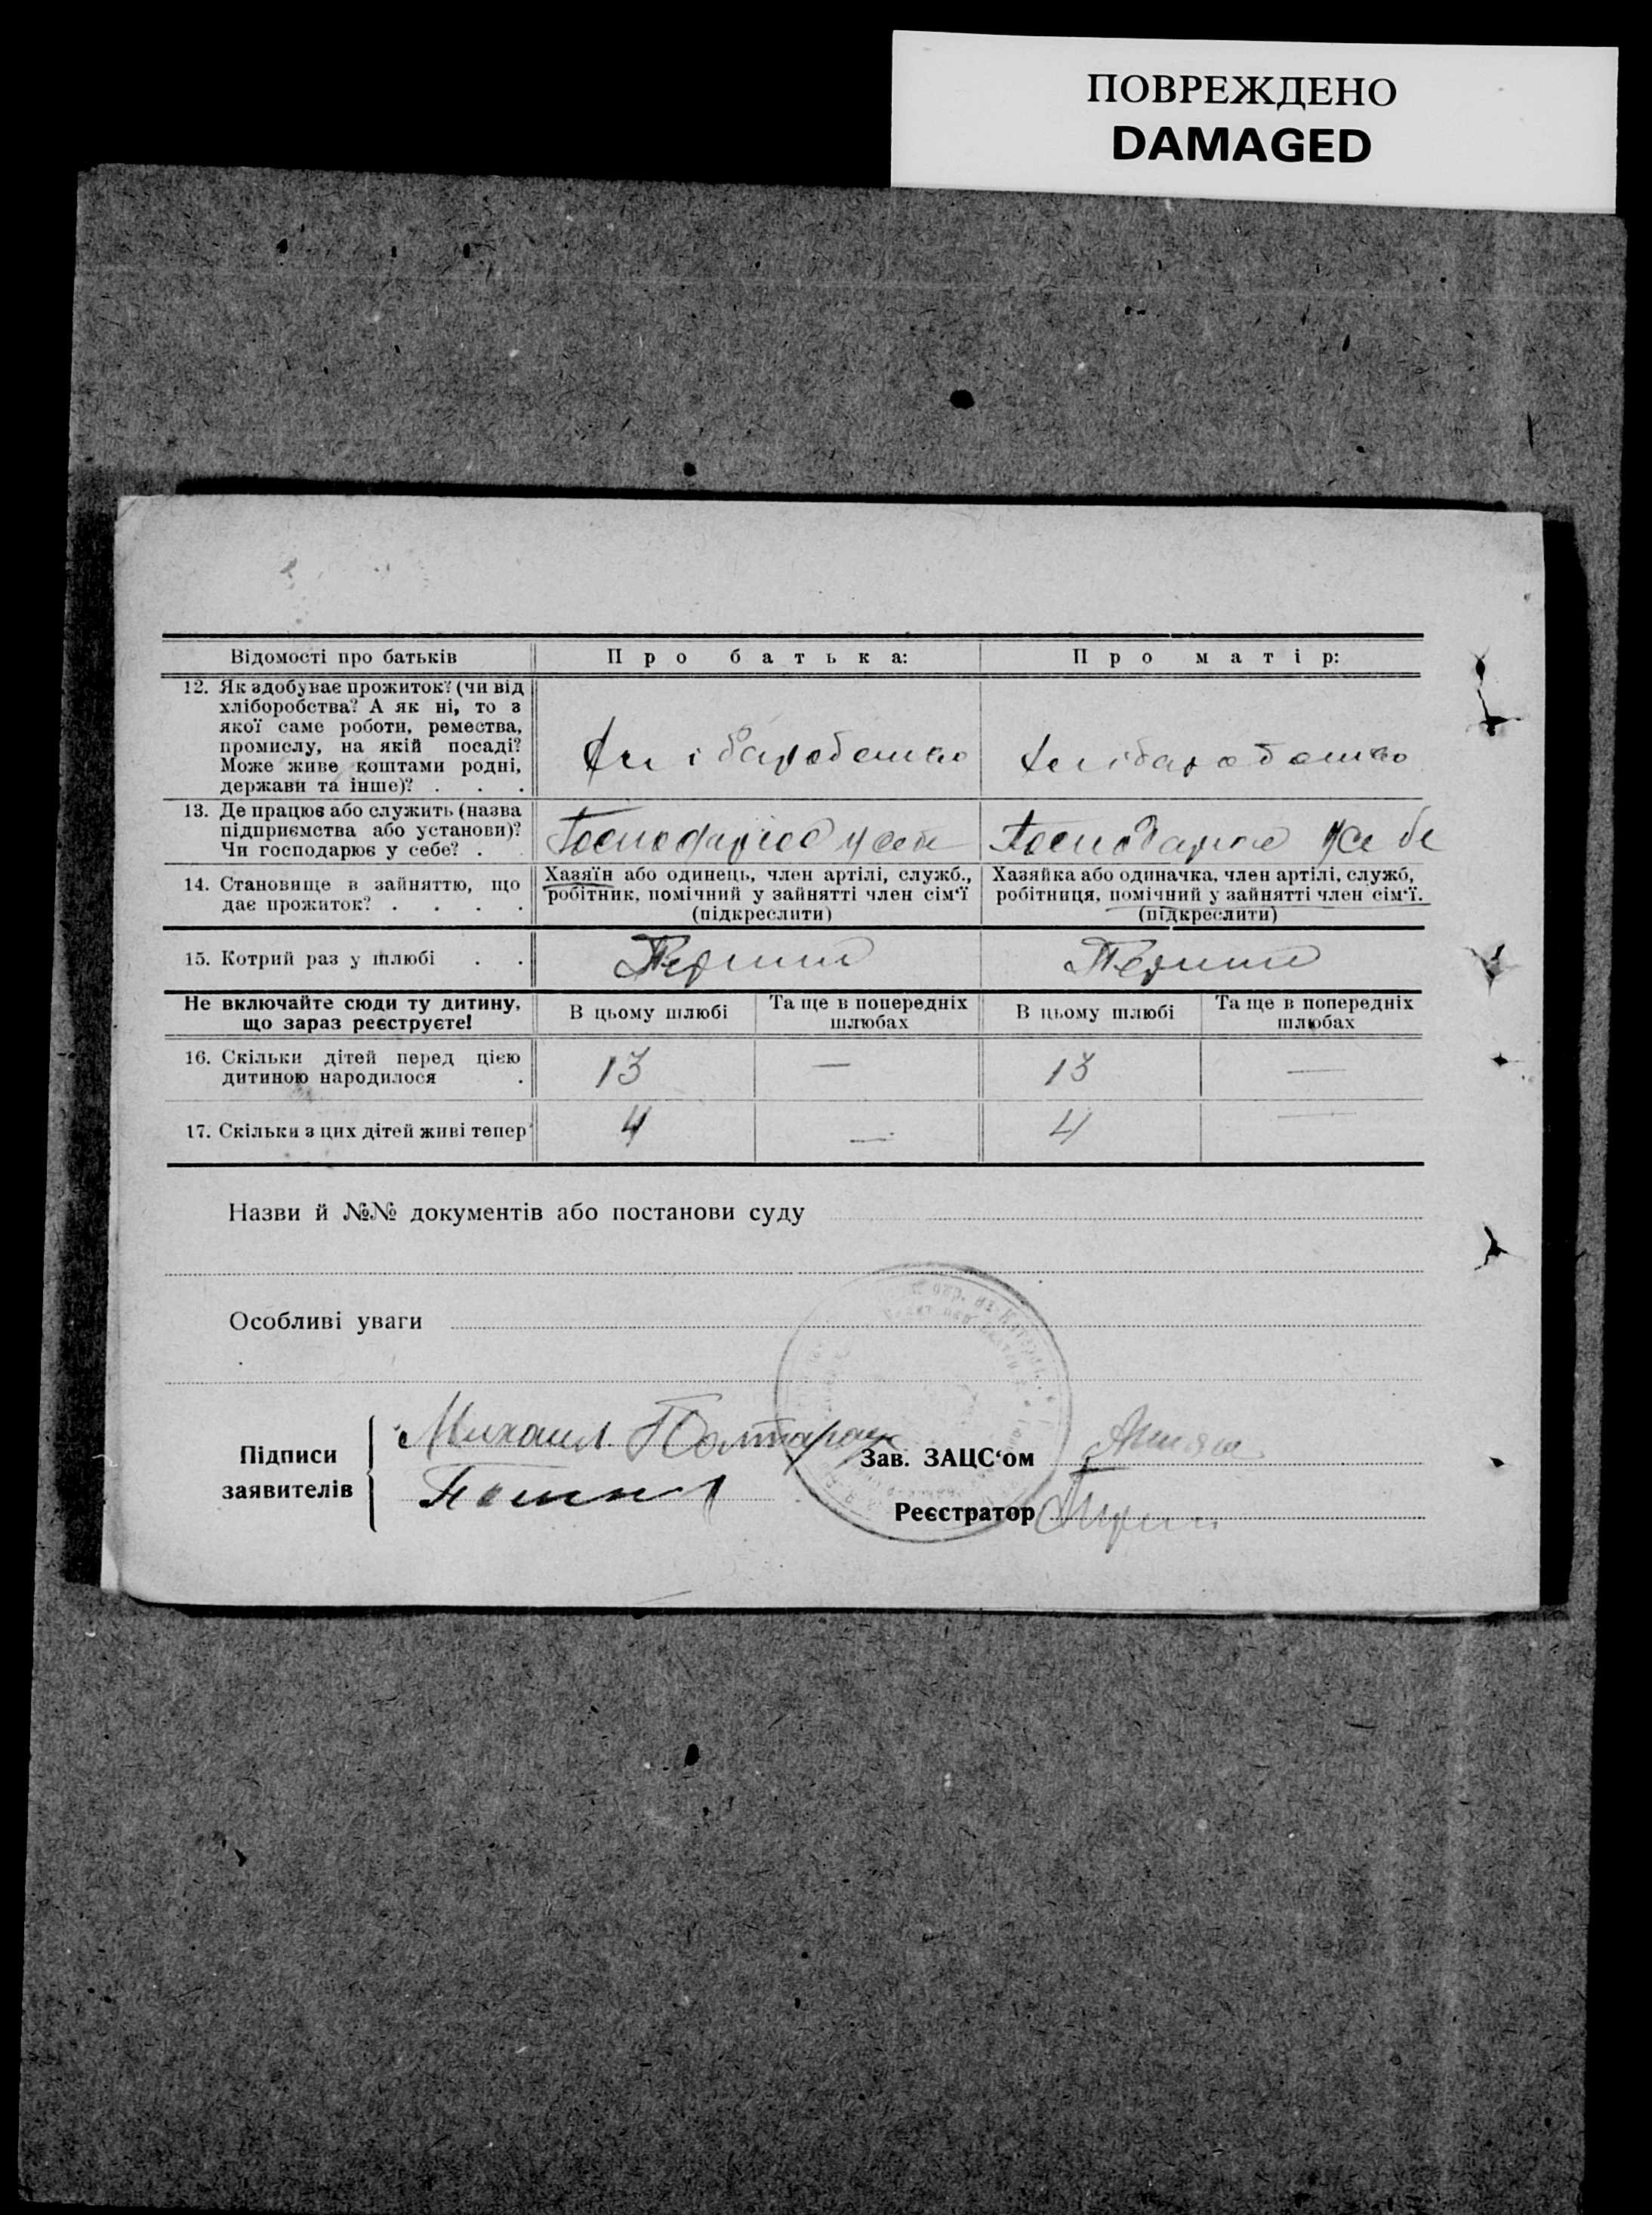 ПОВРЕЖДЕНО
DAMAGED
Відомості про батьків
Про батька:
Про матір:
12. Як здобуває прожиток? (чи від
хліборобства? А як ні, то з
якої саме роботи, ремества,
промислу, на якій посаді?
Може живе коштами родні,
держави та інше)? . . .
13. Де працює або служить (назва
підприємства або установи)?
Чи господарює у себе? .
Господарює у себе
14. Становище в зайняттю, що
дає прожиток? . . . .
Хазяїн або одинець, член артілі, служб.,
робітник, помічний у зайнятті член сім'ї
(підкреслити)
Хазяйка або одиначка, член артілі, служб,
робітниця, помічний у зайнятті член сім'ї.
(підкреслити)
15. Котрий раз у шлюбі . .
Перший
Перший
Не включайте сюди ту дитину,
що зараз реєструєте!
В цьому шлюбі
Та ще в попередніх
шлюбах
В цьому шлюбі
Та ще в попередніх
шлюбах
16. Скільки дітей перед цією
дитиною народилося .
13
—
13
—
17. Скільки з цих дітей живі тепер
4
—
4
—
Назви й №№ документів або постанови суду
Особливі уваги
Підписи
заявителів
Михаил
Зав. ЗАЦС'ом
Реєстратор